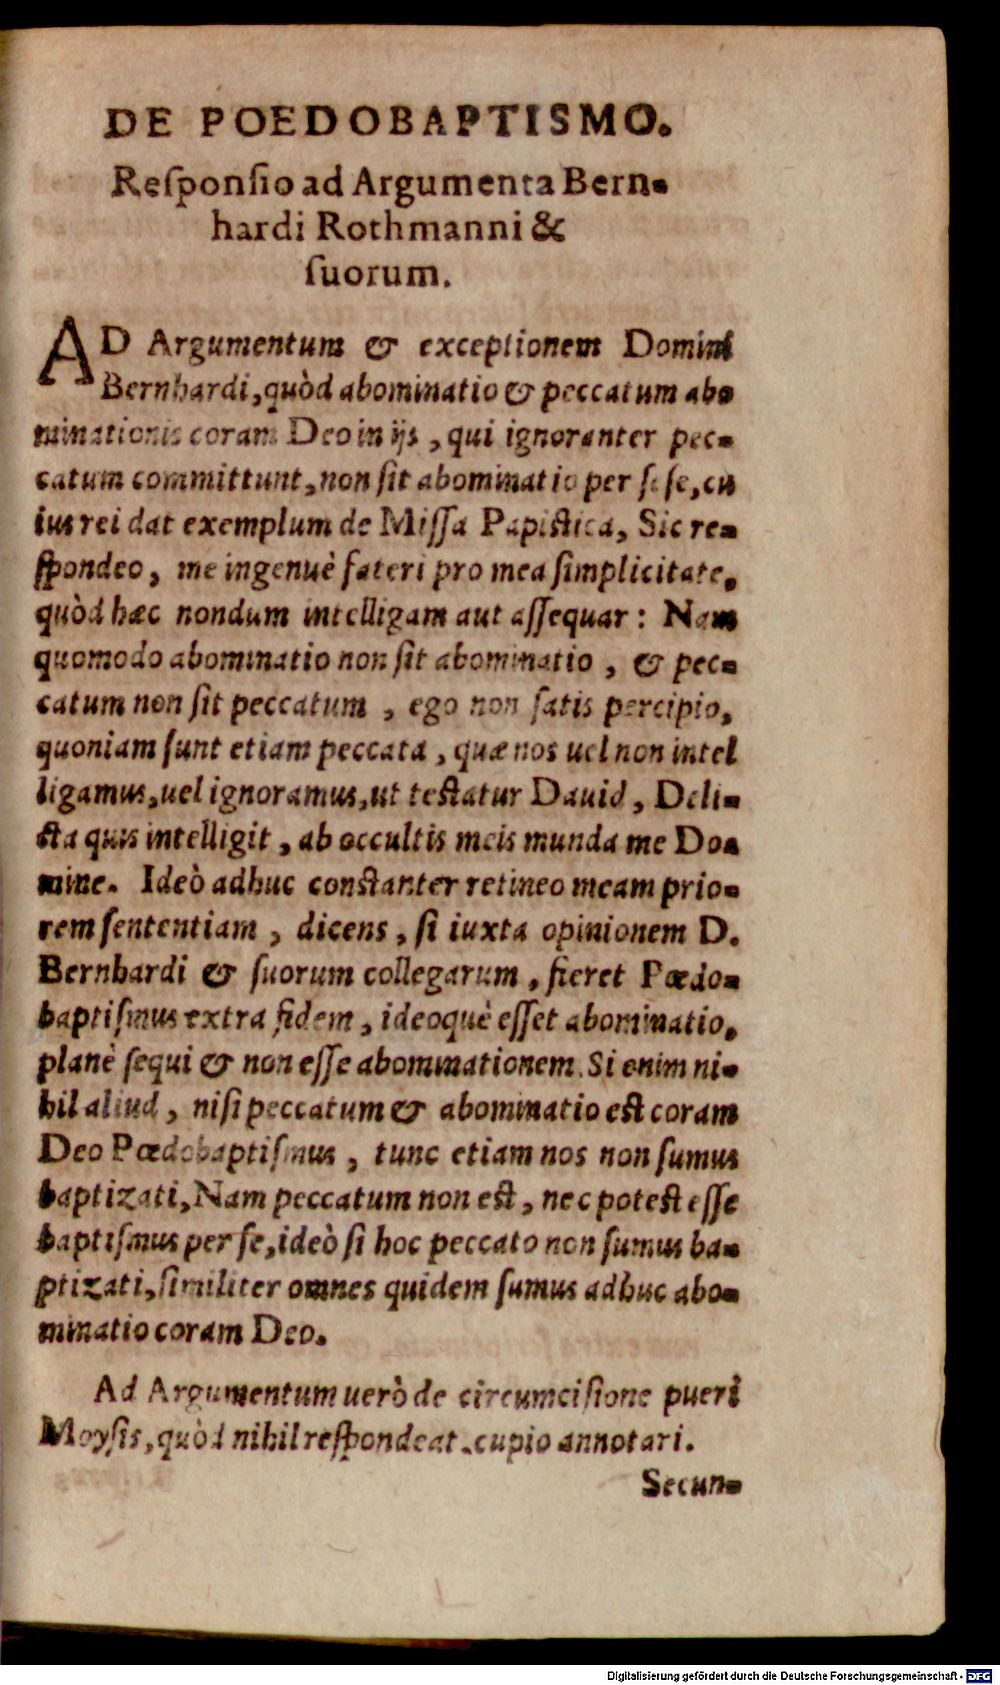 DE POEDOBAPTISMO.
Reſponſio ad Argumenta Bern-
hardi Rothmanni &
ſuorum.
AD Argumentum & exceptionem Domini
Bernhardi, quòd abominatio & peccatum abo
minationis coram Deo in ijs, qui ignoranter pec-
catum committunt, non ſit abominatio per ſe ſe, cu
ius rei dat exemplum de Miſſa Papiſtica, Sic re-
ſpondeo, me ingenuè fateri pro mea ſimplicitate,
quòd hæc nondum intelligam aut aſſequar: Nam
quomodo abominatio non ſit abominatio, & pec-
catum non ſit peccatum, ego non ſatis percipio,
quoniam ſunt etiam peccata, quæ nos uel non intel
ligamus, uel ignoramus, ut teſtatur Dauid, Deli-
cta quis intelligit, ab occultis meis munda me Do-
mine. Ideò adhuc conſtanter retineo meam prio-
rem ſententiam, dicens, ſi iuxta opinionem D.
Bernhardi & ſuorum collegarum, fieret Pœdo-
baptiſmus extra fidem, ideoquè eſſet abominatio,
planè ſequi & non eſſe abominationem. Si enim ni-
hil aliud, niſi peccatum & abominatio eſt coram
Deo Pœdobaptiſmus, tunc etiam nos non ſumus
baptizati, Nam peccatum non eſt, nec poteſt eſſe
baptiſmus per ſe, ideò ſi hoc peccato non ſumus ba-
ptizati, ſimiliter omnes quidem ſumus adhuc abo-
minatio coram Deo.
Ad Argumentum uerò de circumciſione pueri
Moyſis, quòd nihil reſpondeat, cupio annotari.
Secun-
Digitalisierung gefördert durch die Deutsche Forschungsgemeinschaft - DFG